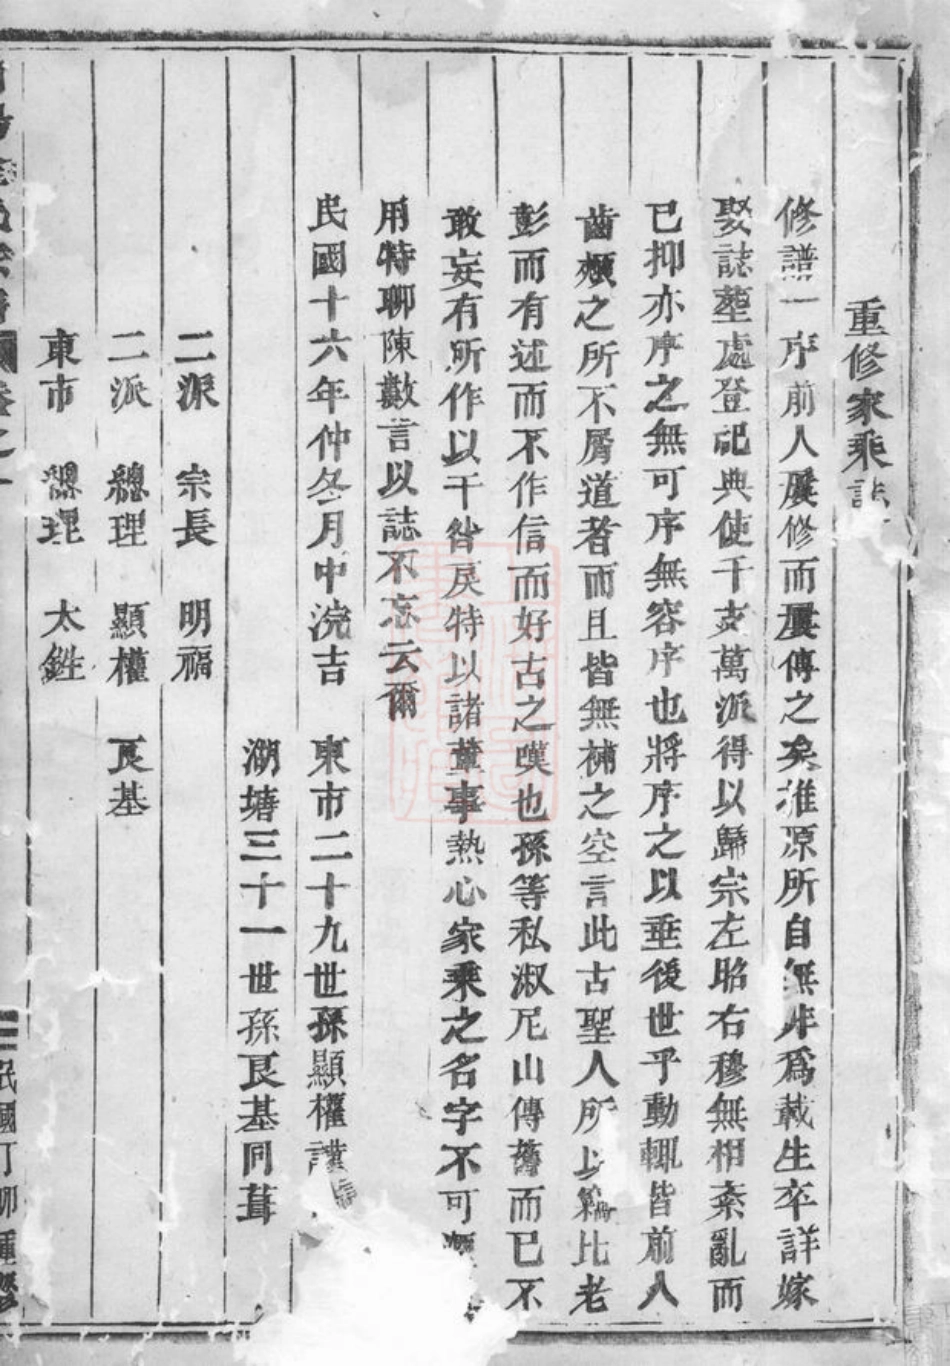 重修家乘誌
修譜一序前人屢修而屢傳之矣推源所自無非爲載生卒詳嫁
娶誌塟處登記典使千支萬派得以歸宗左昭右穆無相紊亂而
已抑亦序之無可序無容序也將序之以垂後世乎動輒皆前人
齒頰之所不屑道者而且皆無補之空言此古聖人所以竊比老
彭而有述而不作信而好古之嘆也孫等私淑尼山傳舊而已不
敢妄有所作以干咎戾特以諸董事熱心家乘之名字不可
用特聊陳數言以誌不忘云爾
民國十六年仲冬月中浣吉 東市二十九世孫顯權謹
湖塘三十一世孫良基同葺
二派 宗長 明福
二派 總理 顯權 良基
東市 總理 太鉎
民國丁卯重修